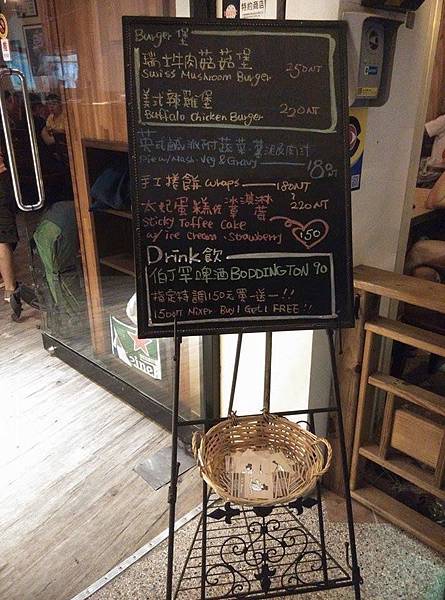 特約商店
Burger 堡
瑞士牛肉菇菇堡
Swiss Mushroom Burger 250NT
美式辣雞堡
Buffalo Chicken Burger 220NT
英式鹹派附蔬菜.薯泥&肉汁
Pie w/Mash.Veg & Gravy 180NT
手工捲餅 Wraps 180NT
~ 220NT
太妃蛋糕佐冰淇淋
草莓
Sticky Toffee Cake
w/ice Cream.Strawberry 150
Drink 飲
伯丁罕啤酒 BODDINGTON 90
指定特調150元買一送一!!
150NT Mixer Buy1 Get1 FREE!!